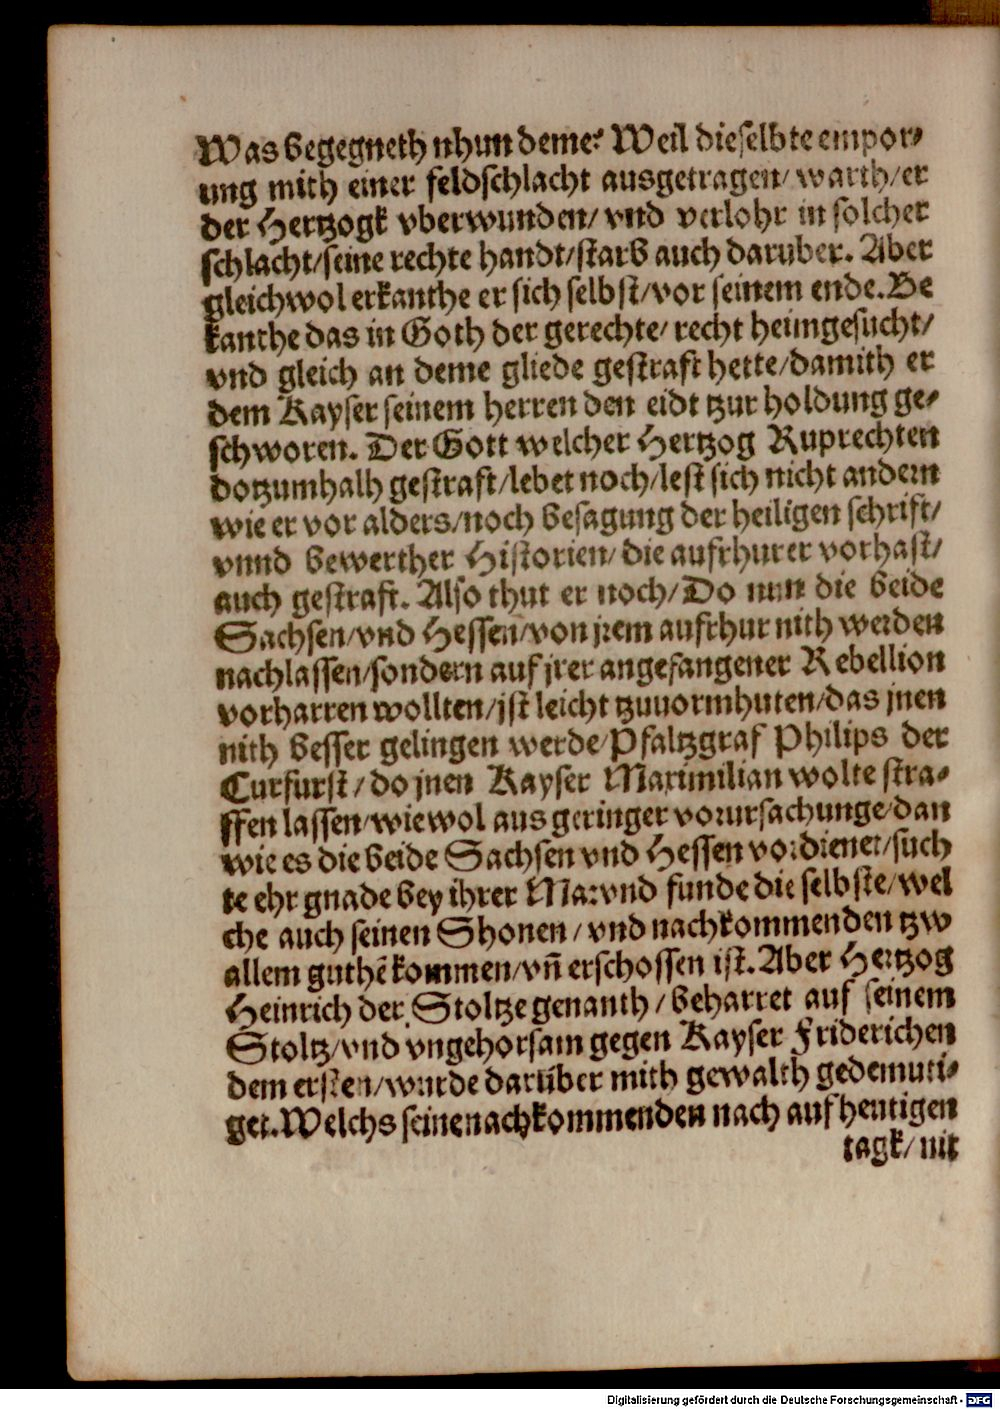 Was begegneth nhun deme? Weil dieselbte empor⸗
ung mith einer feldschlacht ausgetragen/ warth/er
der Hertzogk vberwunden/ vnd verlohr in solcher
schlacht/seine rechte handt/starb auch daruber. Aber
gleichwol erkanthe er sich selbst/vor seinem ende.Be
kanthe das in Goth der gerechte/ recht heimgesucht/
vnd gleich an deme gliede gestraft hette/damith er
dem Kayser seinem herren den eidt tzur holdung ge⸗
schworen. Der Gott welcher Hertzog Ruprechten
dotzumhalh gestraft/lebet noch/lest sich nicht andern
wie er vor alders/noch besagung der heiligen schrift/
vnnd bewerther Historien/ die aufrhurer vorhast/
auch gestraft. Also thut er noch/Do nun die beide
Sachsen/vnd Hessen/von jrem aufrhur nith werden
nachlassen/sondern auf jrer angefangener Rebellion
vorharren wollten/jst leicht tzuuormhuten/das jnen
nith besser gelingen werde/Pfaltzgraf Philips der
Curfurst/ do jnen Kayser Maximilian wolte stra⸗
ffen lassen/wiewol aus geringer vorursachunge/dan
wie es die beide Sachsen vnd Hessen vordienet/such
te ehr gnade bey ihrer Ma:vnd funde die selbste/wel
che auch seinen Shonen/ vnd nachkommenden tzw
allem guthē kommen/vn̄ erschossen ist. Aber Hertzog
Heinrich der Stoltze genanth/ beharret auf seinem
Stoltz/vnd vngehorsam gegen Kayser Friderichen
dem ersten/wurde darüber mith gewalth gedemuti⸗
get.Welchs seine nachkommenden nach auf heutigen
tagk/ nit
Digitalisierung gefördert durch die Deutsche Forschungsgemeinschaft - DFG